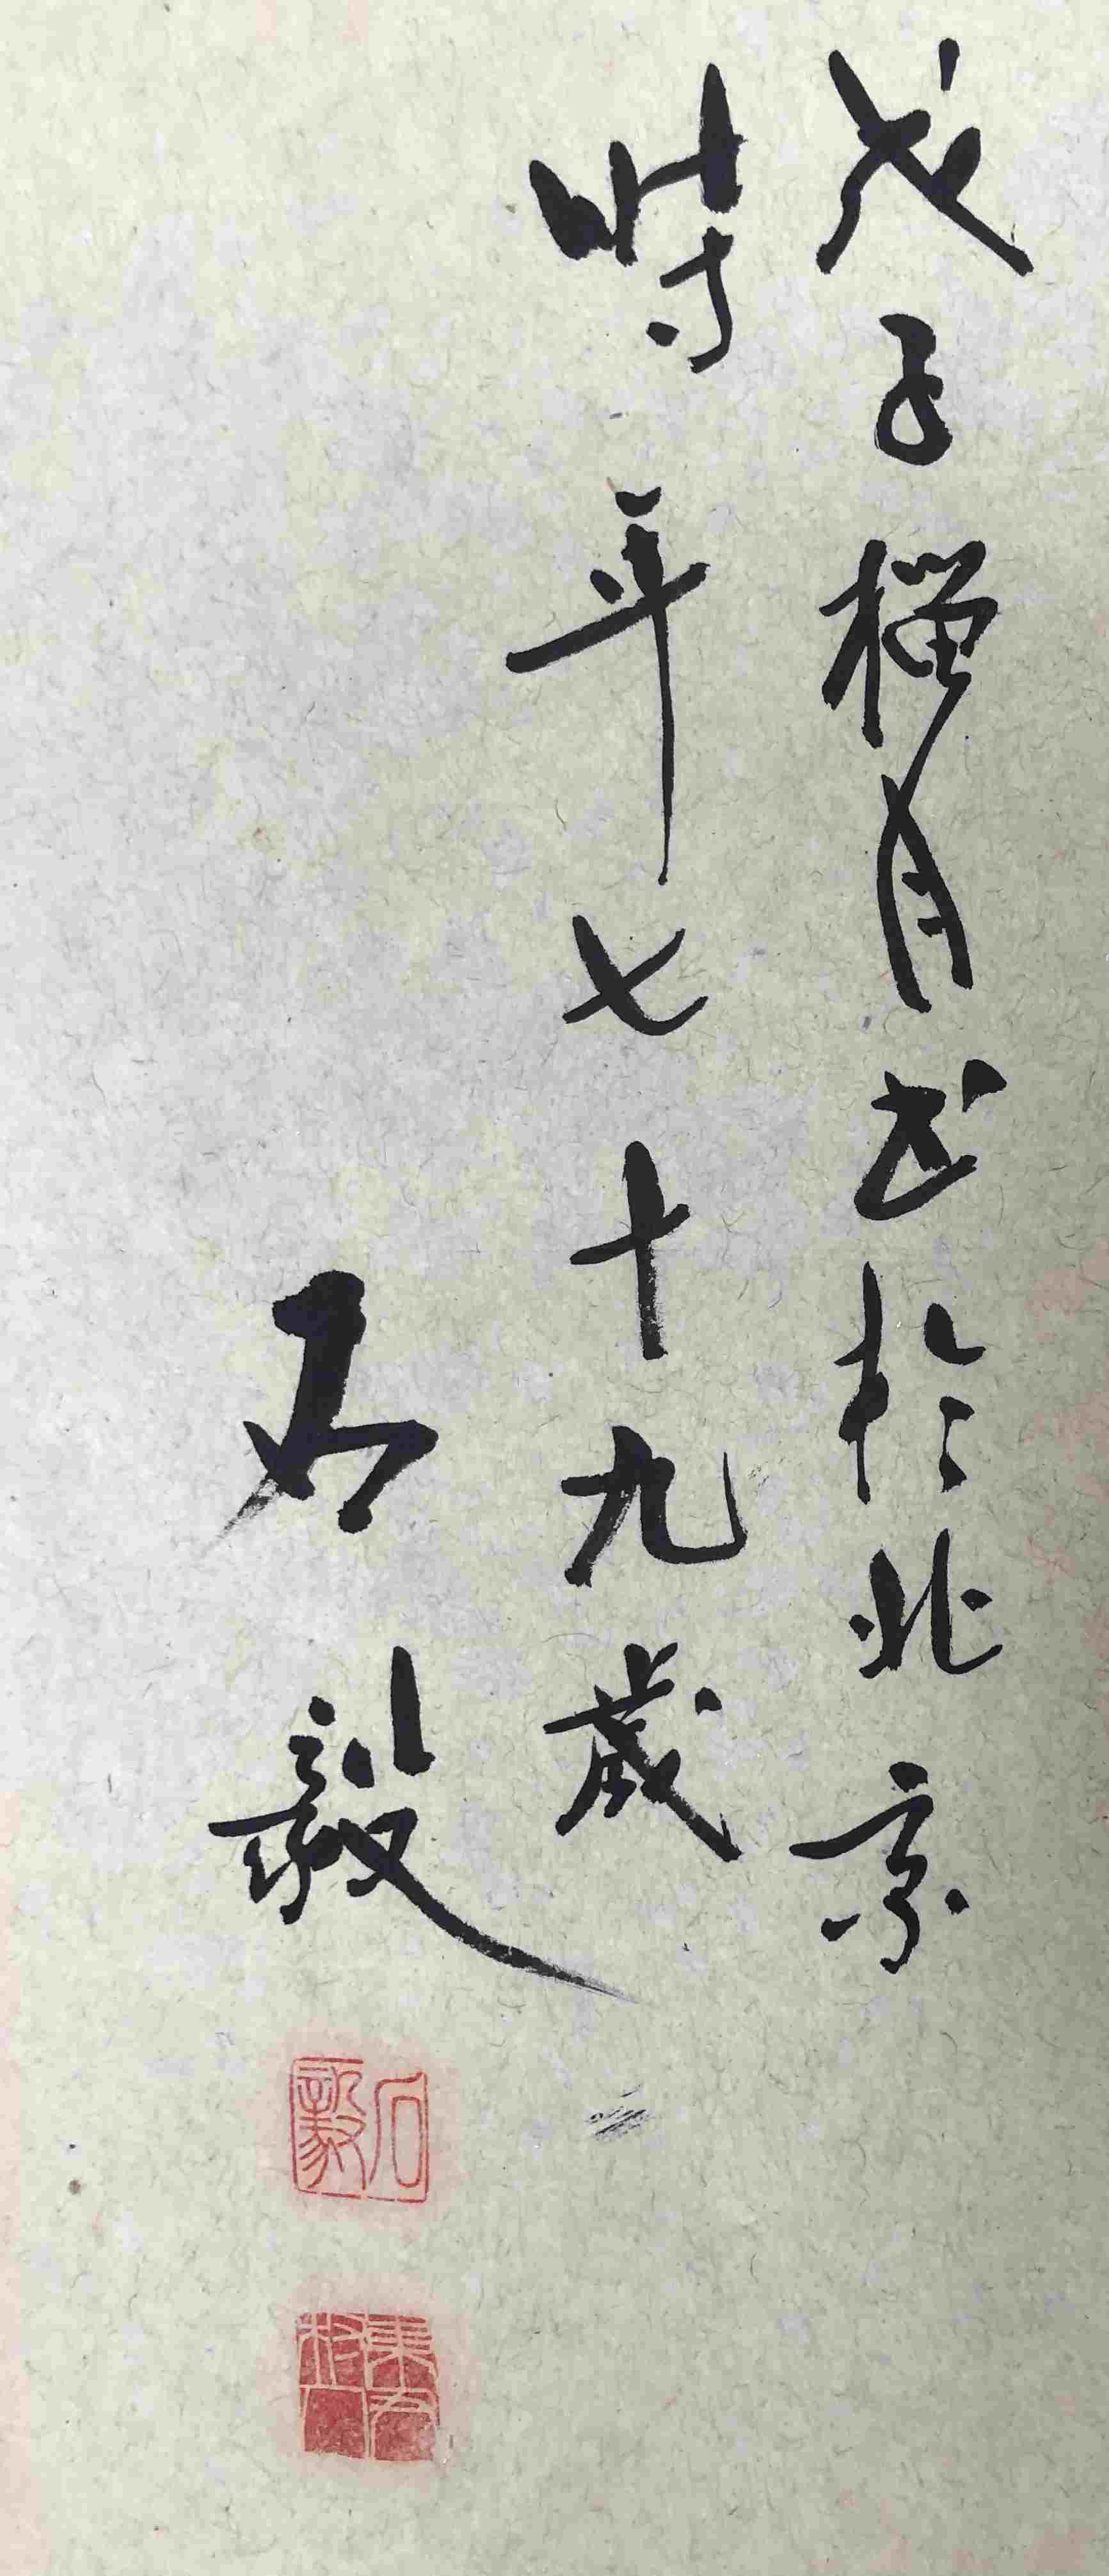 戊子榴月书於北京
時年七十九歲
石毅
石毅